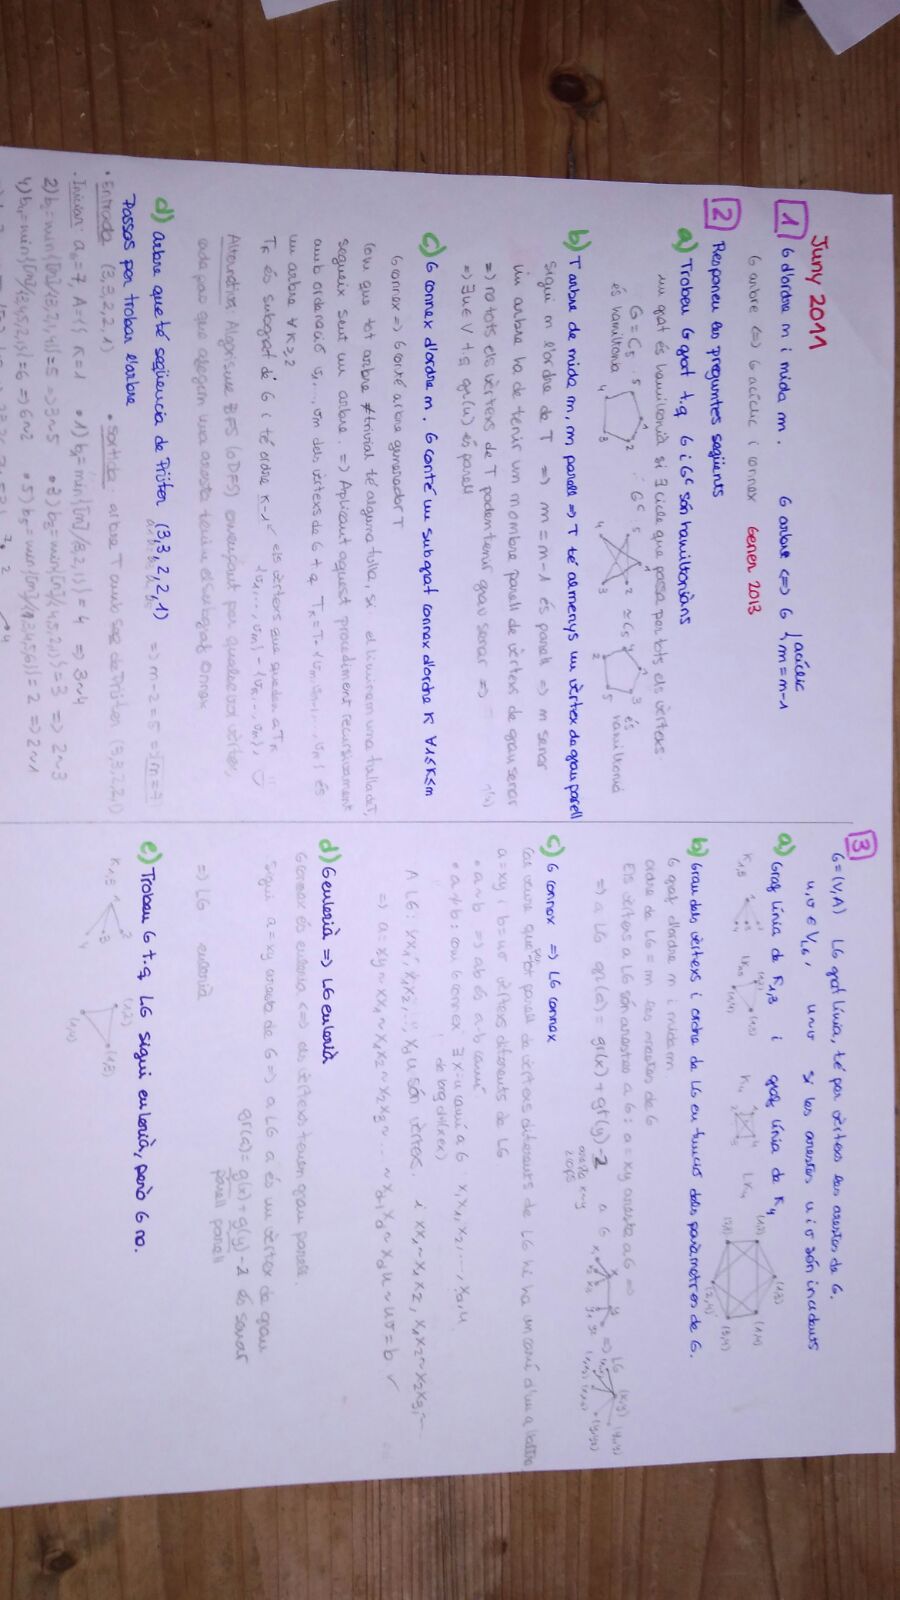 Juny 2011
1 G d'ordre n i mida m. G arbre <=> G { acíclic
m=n-1
G arbre <=> G acíclic i connex Gener 2013
2 Responeu les preguntes següents
a) Trobeu G graf t.q G i Gᶜ són hamiltonians
un graf és hamiltonià si ∃ cicle que passa per tots els vèrtexs.
G = C₅
és hamiltonià
Gᶜ
≃ C₅
és
hamiltonià
b) T arbre de mida m, m parell => T té almenys un vèrtex de grau parell
sigui n l'ordre de T => m = n-1 és parell => n senar
Un arbre ha de tenir un nombre parell de vèrtexs de grau senar
=> no tots els vèrtexs de T poden tenir grau senar =>
=> ∃ u ∈ V t.q gr(u) és parell
c) G connex d'ordre n. G conté un subgraf connex d'ordre k ∀ 1≤k≤n
G connex => G conté arbre generador T
Com que tot arbre ≠ trivial té alguna fulla, si eliminem una fulla de T,
segueix sent un arbre. => Aplicant aquest procediment recursivament
amb ordenació v₁, ..., vₙ dels vèrtexs de G t.q
un arbre ∀ k≥2
Tₖ és subgraf de G i té ordre k-1
els vèrtexs que queden a Tₖ
Alternativa: Algorisme BFS (o DFS) començant per qualsevol vèrtex,
cada pas que afegim una aresta tenim el subgraf connex
d) arbre que té seqüència de Prüfer (3,3,2,2,1) => n-2=5 => n=7
Passos per trobar l'arbre
• Entrada (3,3,2,2,1) • sortida: arbre T amb seq de Prüfer (3,3,2,2,1)
3 G=(V,A) LG graf línia, té per vèrtexs les arestes de G.
u,v ∈ V_LG, u~v si les arestes u i v són incidents
a) Graf línia de K₁,₃ i graf línia de K₄
K₁,₃ LK₁,₃ K₄ LK₄
b) Grau dels vèrtexs i ordre de LG en funció dels paràmetres de G.
G graf d'ordre n i mida m.
ordre de LG = m les arestes de G
Els vèrtexs a LG són arestes a G: a=xy aresta a G =>
=> a LG gr(a) = gr(x) + gr(y) - 2
aresta x~y
2 cops
a G
=> LG
c) G connex => LG connex
Cal veure que per tot parell de vèrtexs diferents de LG hi ha un camí d'un a l'altre
a=xy i b=uv vèrtexs diferents de LG
• a~b => ab és a-b camí
• a≁b: com G connex ∃ x-u camí a G x, x₁, x₂, ..., x_d, u
A LG: xx₁, x₁x₂, ..., x_d u són vèrtexs i xx₁ ~ x₁x₂, x₁x₂ ~ x₂x₃, ~
=> a = xy ~ xx₁ ~ x₁x₂ ~ x₂x₃ ~ ... ~ x_d u ~ uv = b ✓
d) G eulerià => LG eulerià
G connex és eulerià <=> els vèrtexs tenen grau parell.
Sigui a = xy aresta de G => a LG a és un vèrtex de grau
gr(a) = g(x) + g(y) - 2 és senar
parell parell
=> LG eulerià
e) Trobeu G t.q LG sigui eulerià, però G no.
K₁,₃
(1,2)
(1,3)
(1,4)